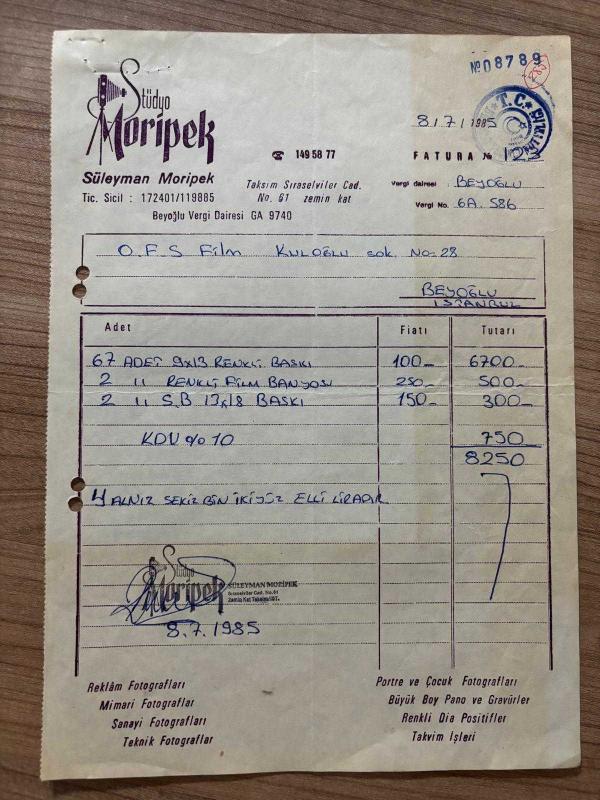 № 08789
285
T.C.
Stüdyo
Moripek
8/7/1985
☎ 149 58 77
FATURA № 123
Süleyman Moripek
Taksim Sıraselviler Cad.
Vergi dairesi BEYOĞLU
Tic. Sicil : 172401/119885
No. 61 zemin kat
Vergi No. 6A. 586
Beyoğlu Vergi Dairesi GA 9740
O.F.S Film KULOĞLU sok. No-28
BEYOĞLU
İSTANBUL
Adet Fiatı Tutarı
67 ADET 9x13 RENKLİ BASKI 100- 6700-
2 " RENKLİ FİLM BANYOSU 250- 500-
2 " S.B 13x18 BASKI 150- 300-
KDV %10 750-
8250
YALNIZ SEKİZ BİN İKİYÜZ ELLİ LİRADIR
Stüdyo
Moripek
SÜLEYMAN MORİPEK
Sıraselviler Cad. No.61
Zemin Kat Taksim/İST.
8.7.1985
Reklâm Fotografları
Mimari Fotografları
Sanayi Fotografları
Teknik Fotograflar
Portre ve Çocuk Fotografları
Büyük Boy Pano ve Gravürler
Renkli Dia Positifler
Takvim İşleri